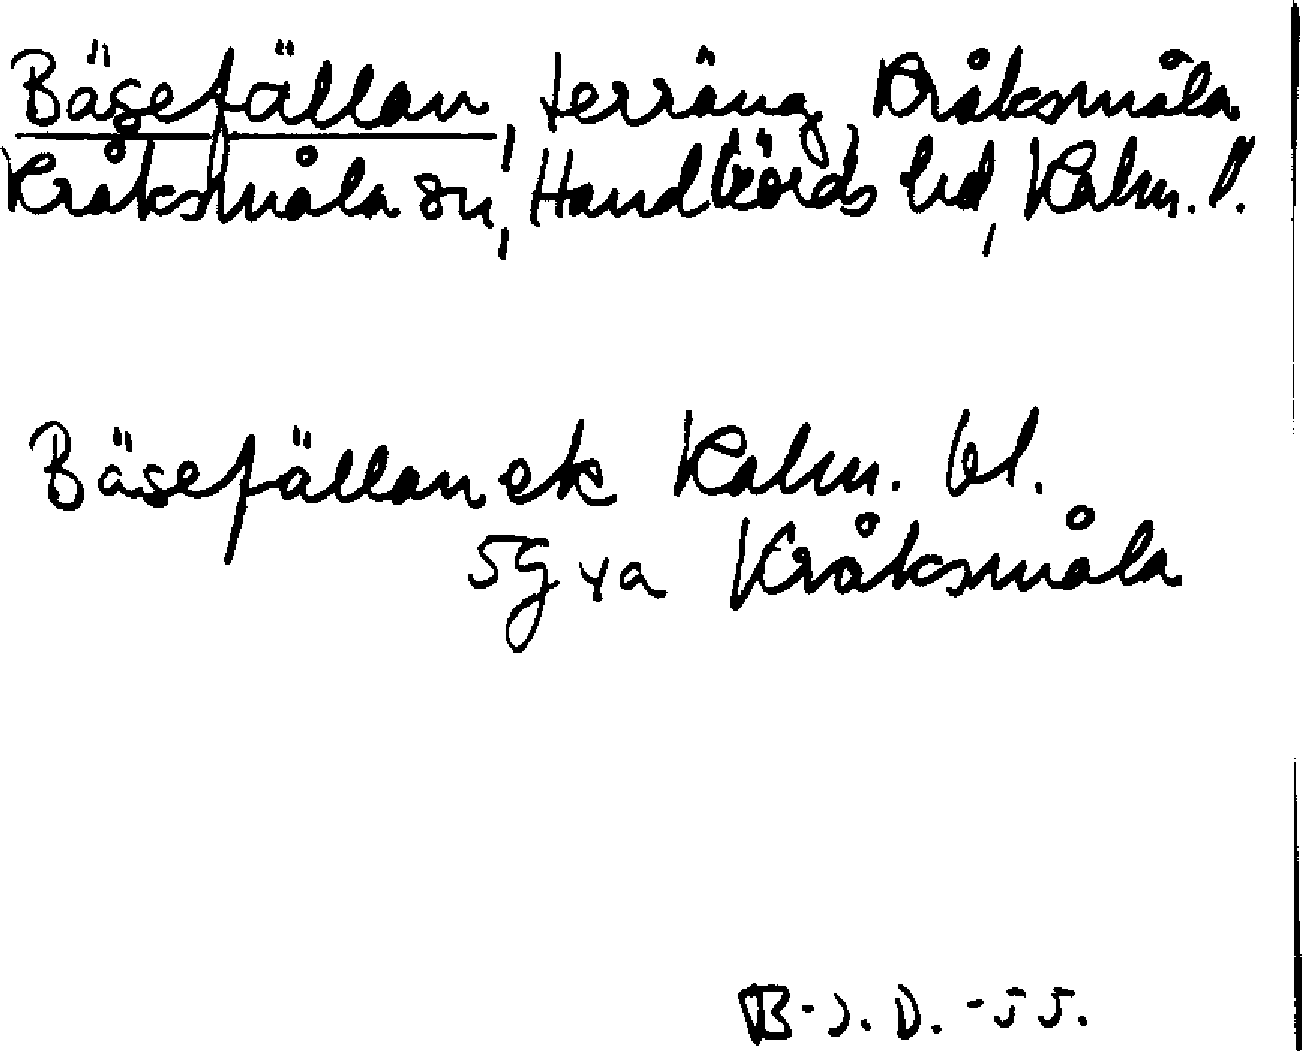 Bäsefällan, terräng, Kråksmåla
Kråksmåla sn, Handbörds hd, Kalm. l.
Bäsefällan ek Kalm. bl.
5g ya Kråksmåla
B-J. D. -55.